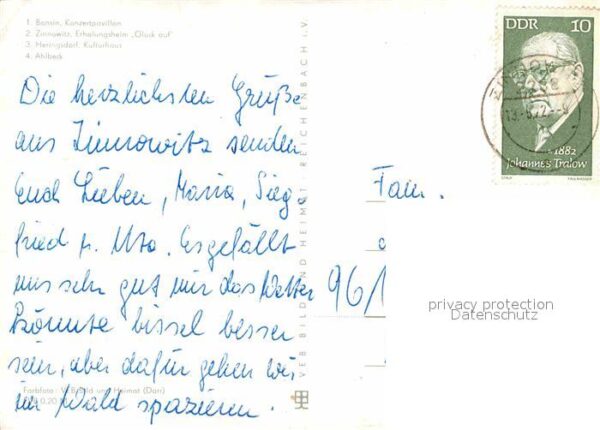 1. Bansin, Konzertpavillon
2. Zinnowitz, Erholungsheim „Glück auf"
3. Heringsdorf, Kulturhaus
4. Ahlbeck
Die herzlichsten Grüße
aus Zinnowitz senden
Euch Lieben, Maria, Sieg-
fried u. Uto. Es gefällt
uns sehr gut nur das Wetter
könnte bissel besser
sein, aber dafür gehen wir
im Wald spazieren.
Farbfoto: VEB Bild und Heimat (Darr)
0,20
VEB BILD UND HEIMAT REICHENBACH i. V.
DDR 10
1882
Johannes Tralow
Fam.
96/1
privacy protection
Datenschutz